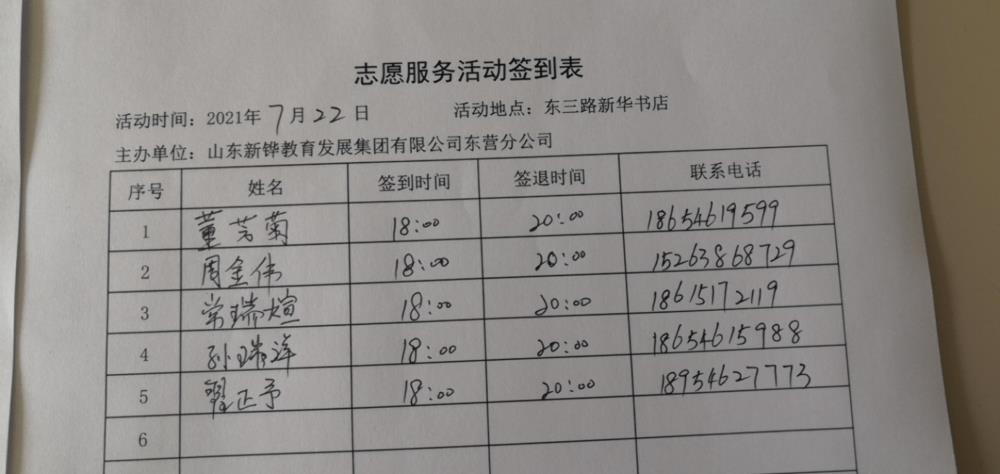 志愿服务活动签到表
活动时间：2021年 7 月 22 日 活动地点：东三路新华书店
主办单位：山东新铧教育发展集团有限公司东营分公司
序号 姓名 签到时间 签退时间 联系电话
1 董芳菊 18:00 20:00 18654619599
2 周金伟 18:00 20:00 15263868729
3 常瑞煊 18:00 20:00 18615172119
4 孙瑞泽 18:00 20:00 18654615988
5 翟正予 18:00 20:00 18954627773
6